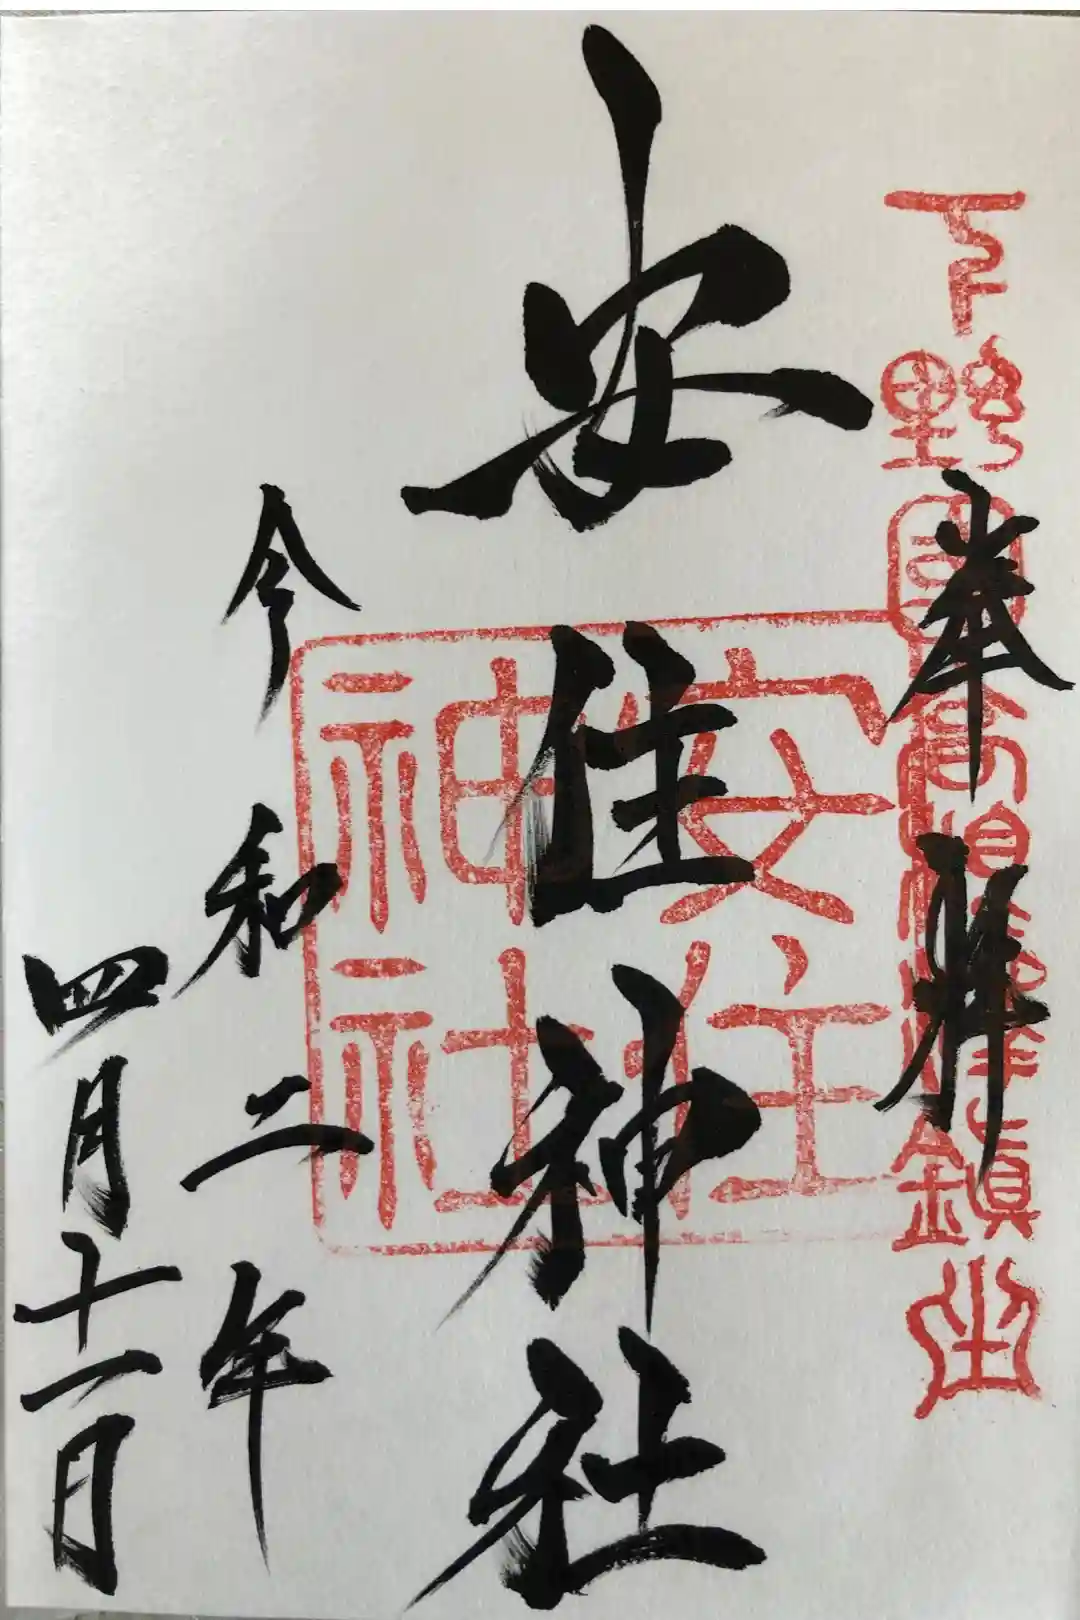 下野國高椅鎮座
奉拝
安住神社
安住
神社
令和二年
四月十一日